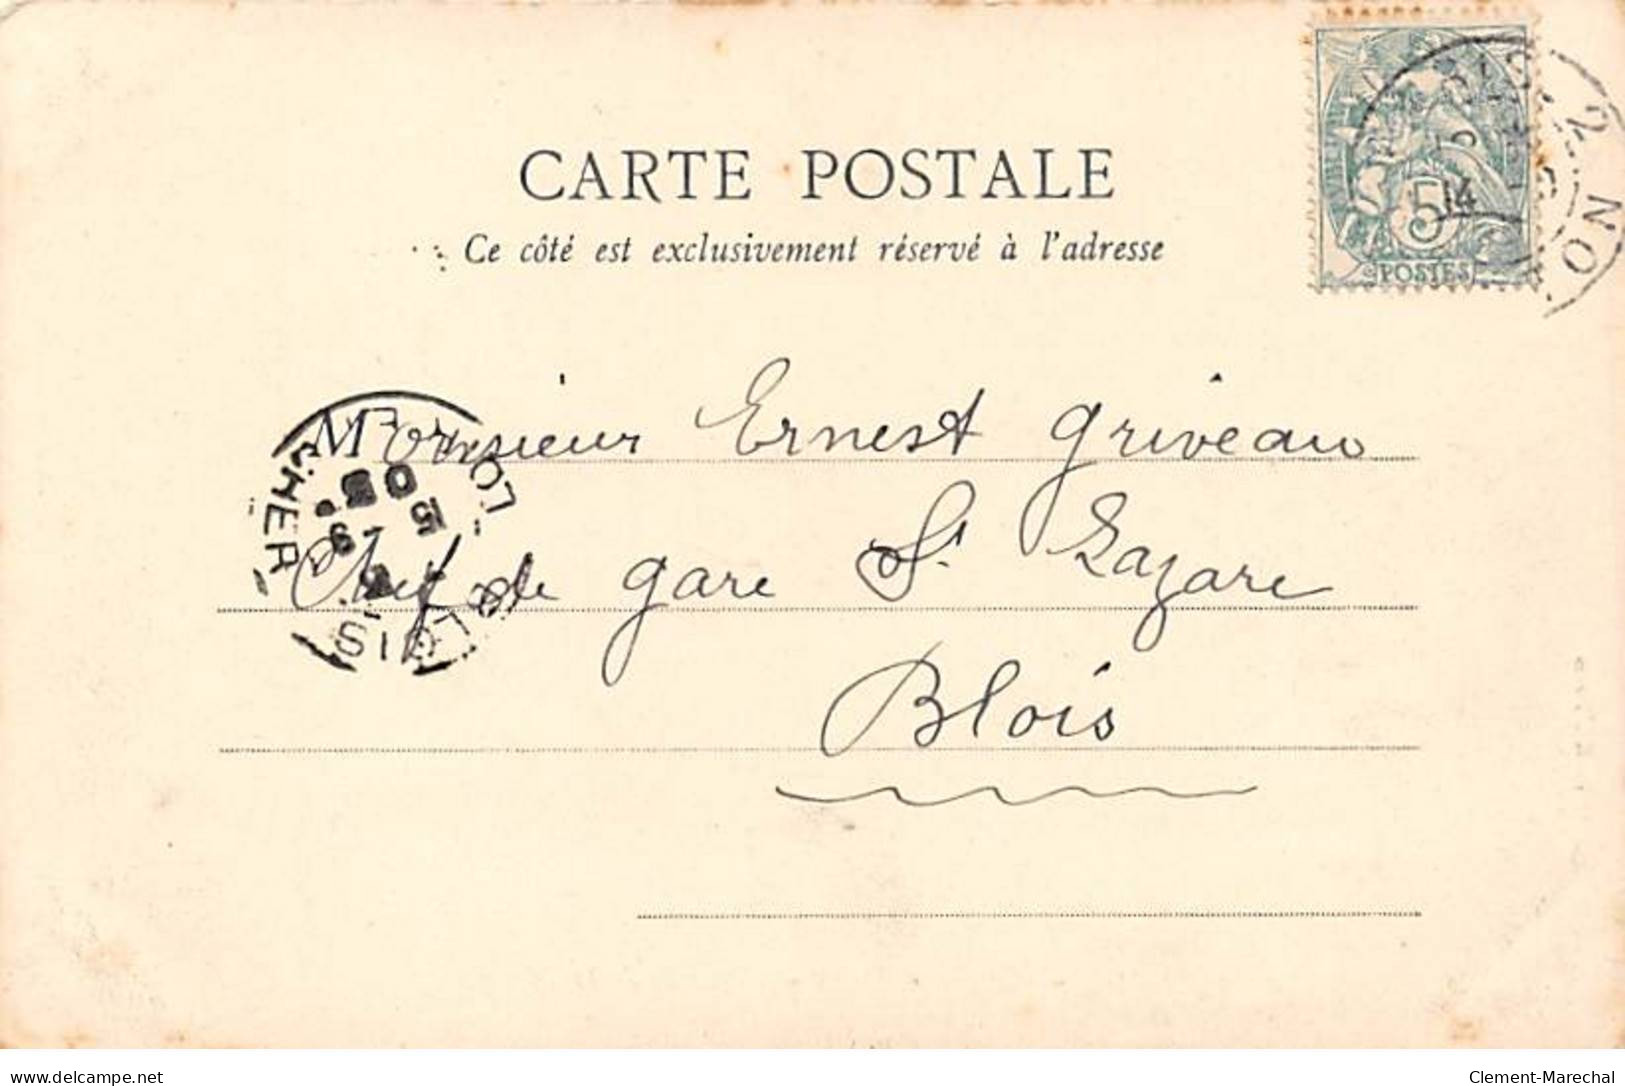 CARTE POSTALE
Ce côté est exclusivement réservé à l'adresse
5
POSTES
Monsieur Ernest Griveau
Chef de gare St. Lazare
Blois
BLOIS
LOIR-ET-CHER
delcampe.net
Clement-Marechal